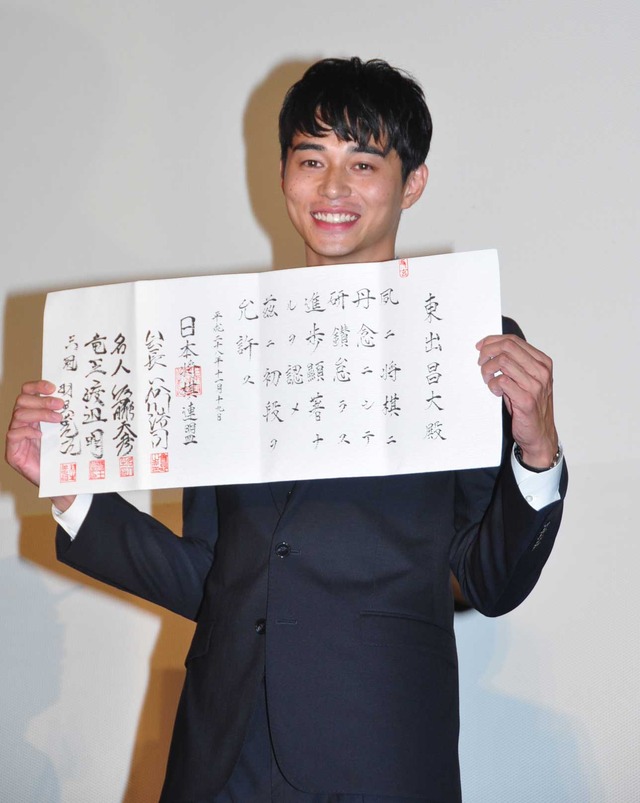 東出昌大殿
夙ニ将棋ニ
丹念ニシテ
研鑽怠ラス
進歩顕著ナ
ルヲ認メ
茲ニ初段ヲ
允許ス
平成二十八年十一月十九日
日本将棋連盟
会長 谷川浩司
名人 佐藤天彦
竜王 渡辺明
三冠 羽生善治